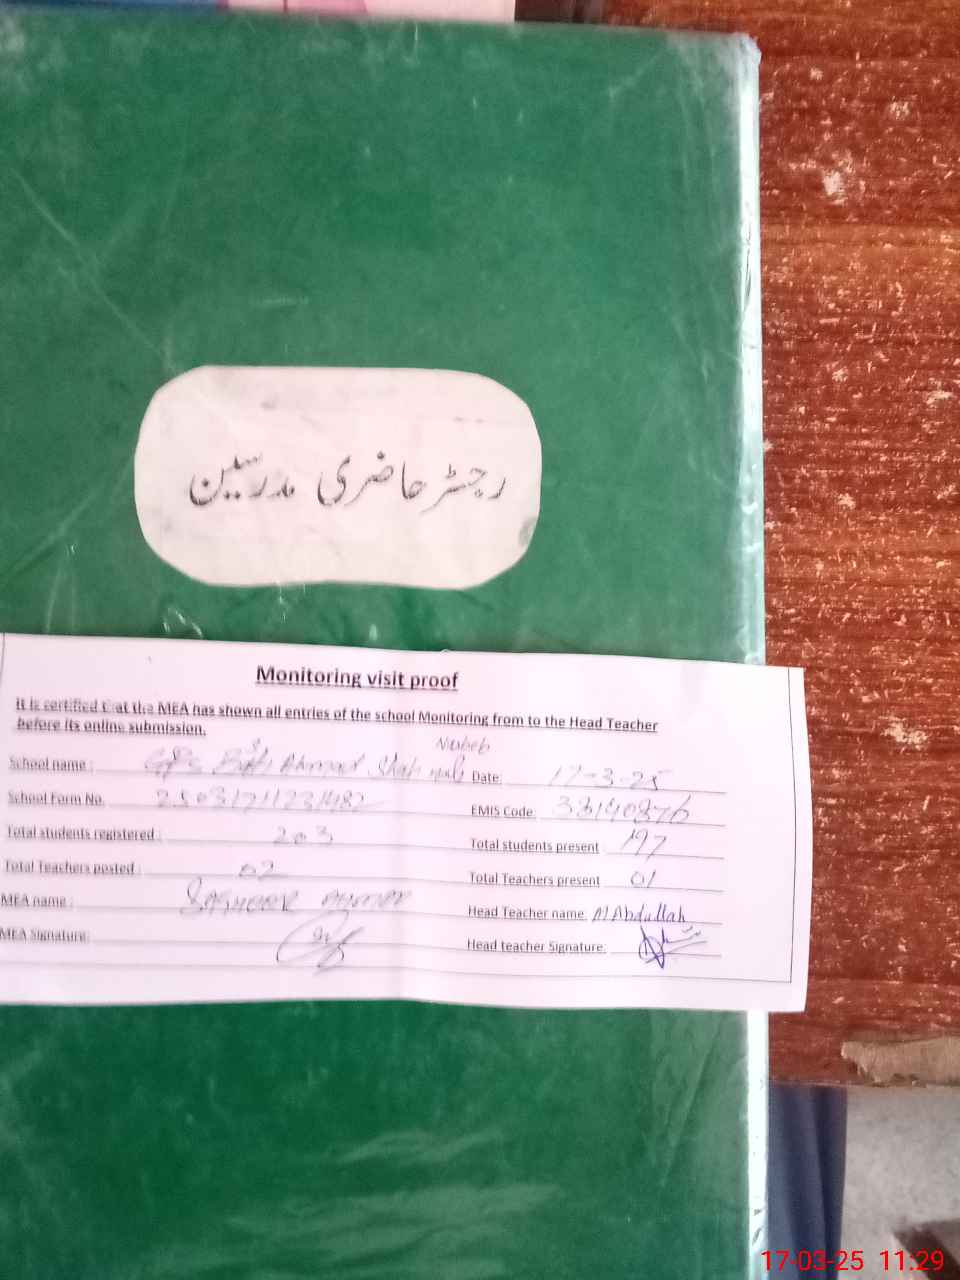 رجسٹر حاضری مدرسین
Monitoring visit proof
It is certified that the MEA has shown all entries of the school Monitoring from to the Head Teacher
before its online submission.
School name : GPS Ahmad Shah Date: 17-3-25
School Form No. EMIS Code 33140876
Total students registered : 203 Total students present 197
Total Teachers posted : 02 Total Teachers present 01
MEA name : SAGHEER AHMAD Head Teacher name: M Abdullah
MEA Signature: Head teacher Signature.
17-03-25 11:29